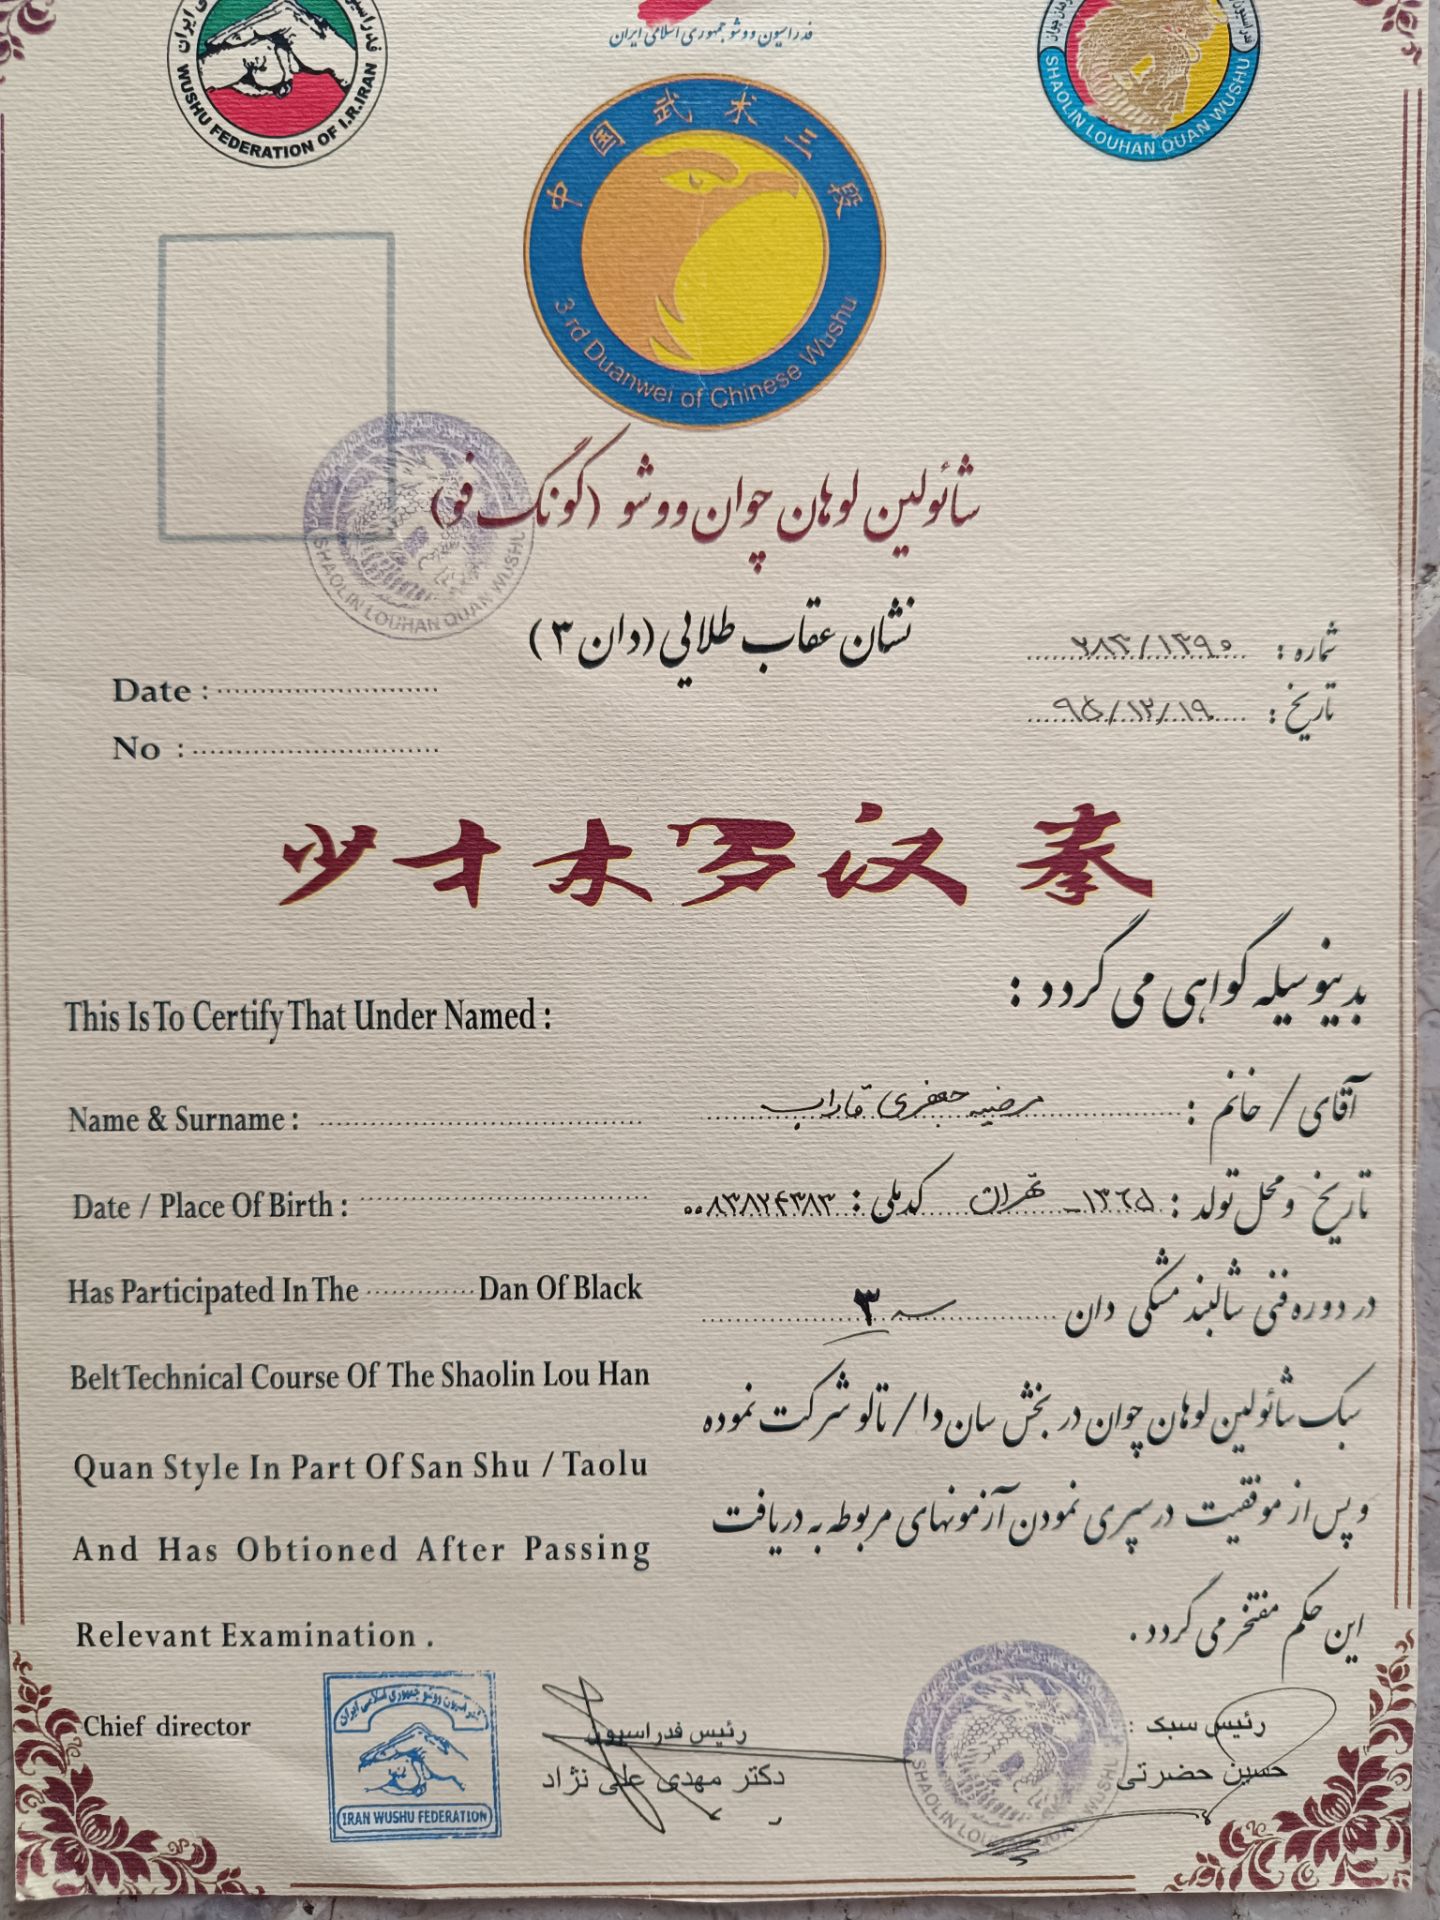 فدراسیون ووشو جمهوری اسلامی ایران
WUSHU FEDERATION OF I.R.IRAN
SHAOLIN LOUHAN QUAN WUSHU
中国武术三段
3 rd Duanwei of Chinese Wushu
شائولین لوهان چوان ووشو (گونگ فو)
SHAOLIN LOUHAN QUAN WUSHU
نشان عقاب طلایی (دان ۳)
شماره : ۷۸۳/۱۳۹۰
Date :
تاریخ : ۹۵/۱۲/۱۹
No :
少林罗汉拳
بدینوسیله گواهی می گردد :
This Is To Certify That Under Named :
آقای / خانم : مرضیه جعفری فاراب
Name & Surname :
تاریخ و محل تولد : ۱۳۶۵ - تهران کدملی : ۰۰۸۳۸۲۴۳۸۳
Date / Place Of Birth :
در دوره فنی شالبند مشکی دان سه ۳
Has Participated In The Dan Of Black
سبک شائولین لوهان چوان در بخش سان دا / تالو شرکت نموده
Belt Technical Course Of The Shaolin Lou Han
Quan Style In Part Of San Shu / Taolu
و پس از موفقیت در سپری نمودن آزمونهای مربوطه به دریافت
And Has Obtioned After Passing
این حکم مفتخر می گردد .
Relevant Examination .
Chief director
فدراسیون ووشو جمهوری اسلامی ایران
IRAN WUSHU FEDERATION
رئیس فدراسیون
دکتر مهدی علی نژاد
SHAOLIN LOUHAN QUAN WUSHU
رئیس سبک :
حسین حضرتی